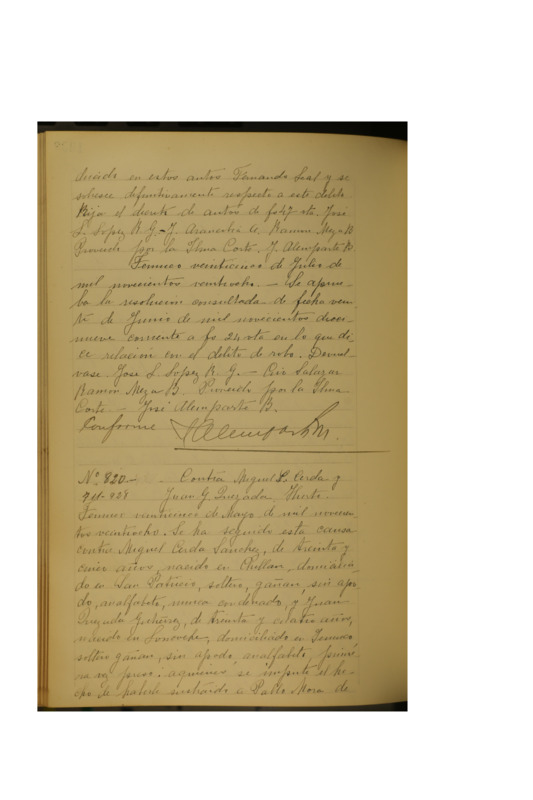 ducido en estos autos Fernando Leal y se
sobresee definitivamente respecto a este delito
Rija el decreto de autos de fs 47 vta. José
L. Lopez R. G. - J. Aravantia C. Ramon Meza B
Proveido por la Iltma Corte. J. Alemparte B.
Temuco veinticinco de Julio de
mil novecientos veintiocho. - Se aprue-
ba la resolucion consultada de fecha vein
te de Junio de mil novecientos dieci
nueve corriente a fs 24 vta en lo que di-
ce relacion con el delito de robo. Devuel-
vase José L. Lopez R. G. - Osio Salazar
Ramon Meza B. Proveido por la Iltma
Corte - José Alemparte B.
Conforme JAlemparte B.
Nº 820.- Contra Miguel 2º Cerda y
Juan G. Quezada, Hurto.
Temuco veinticinco de Mayo de mil novecien-
tos veintiocho. Se ha seguido esta causa
contra Miguel Cerda Sanchez, de treinta y
cinco años, nacido en Chillan, domicilia
do en San Patricio, soltero, gañan, sin apo-
do, analfabeto, nunca condenado, y Juan
Quezada Gutierrez, de treinta y cuatro años,
nacido en Loncoche, domiciliado en Temuco
soltero gañan, sin apodo, analfabeto, prime
ra vez preso, a quienes se imputa el he-
cho de haberle sustraido a Pablo Mora de